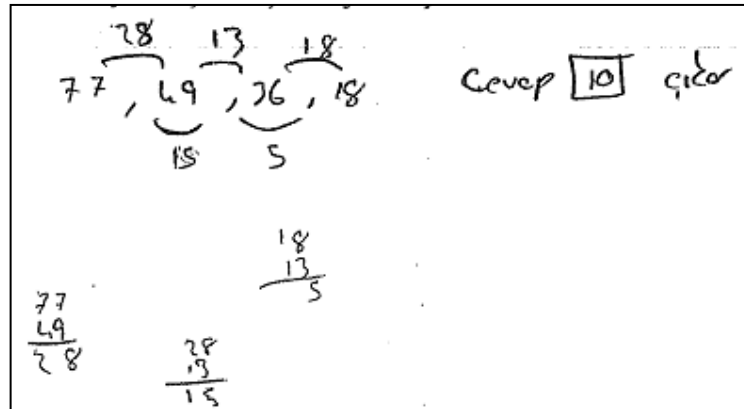 28 13 18
77, 49, 36, 18
15 5
Cevap 10 çıkar
18
13
5
77
49
28
28
13
15